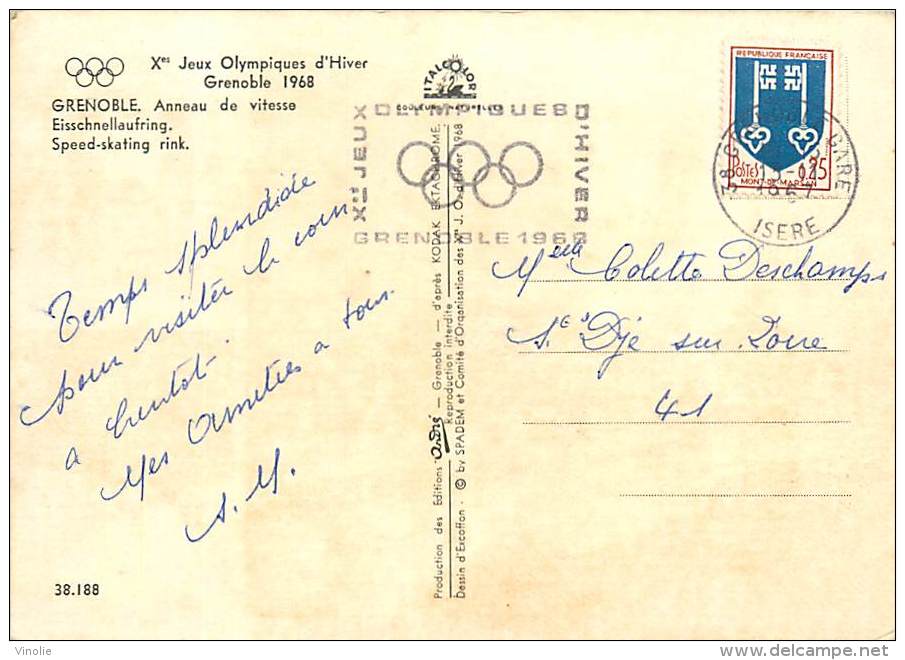 Xes Jeux Olympiques d'Hiver
Grenoble 1968
GRENOBLE. Anneau de vitesse
Eisschnellaufring.
Speed-skating rink.
ITALCOLOR
COULEURS NATURELLES
Xes JEUX OLYMPIQUES D'HIVER
GRENOBLE 1968
REPUBLIQUE FRANÇAISE
POSTES 0,25
MONT-DE-MARSAN
38 GARE
1967
ISERE
Temps splendide
pour visiter le coin
a bientot.
Mes Amitiés a tous.
S. M.
Melle Colette Deschamps
St Dyé sur Loire
41
Production des Editions André — Grenoble — d'après KODAK EKTACHROME.
Reproduction interdite
Dessin d'Excoffon - © by SPADEM et Comité d'Organisation des Xes J. O. d'Hiver 1968
38.188
Vinolie
www.delcampe.net